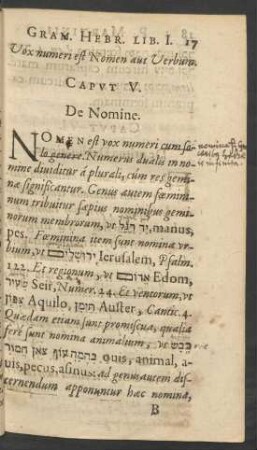 GRAM. HEBR. LIB. I. 17
Vox numeri est Nomen aut Verbum.
CAPVT V.
De Nomine.
NOMEN est vox numeri cum so-
lo genere. Numerus dualis in no-
mine dividitur à plurali, cum res gemi-
næ significantur. Genus autem fœmini-
num tribuitur sæpius nominibus gemi-
norum membrorum, vt יד רגל manus,
pes. Fœminina item sunt nomina vr-
bium, vt ירושלים Ierusalem, Psalm.
122. Et regionum, vt אדום Edom,
שעיר Seir, Numer. 24. Et ventorum, vt
צפון Aquilo, תימן Auster, Cantic. 4.
Quædam etiam sunt promiscua, qualia
ferè sunt nomina animalium, vt
כבש בהמה עוף צאן חמור ouis, animal, a-
uis, pecus, asinus: ad genus autem dis-
cernendum apponuntur hæc nomina,
B